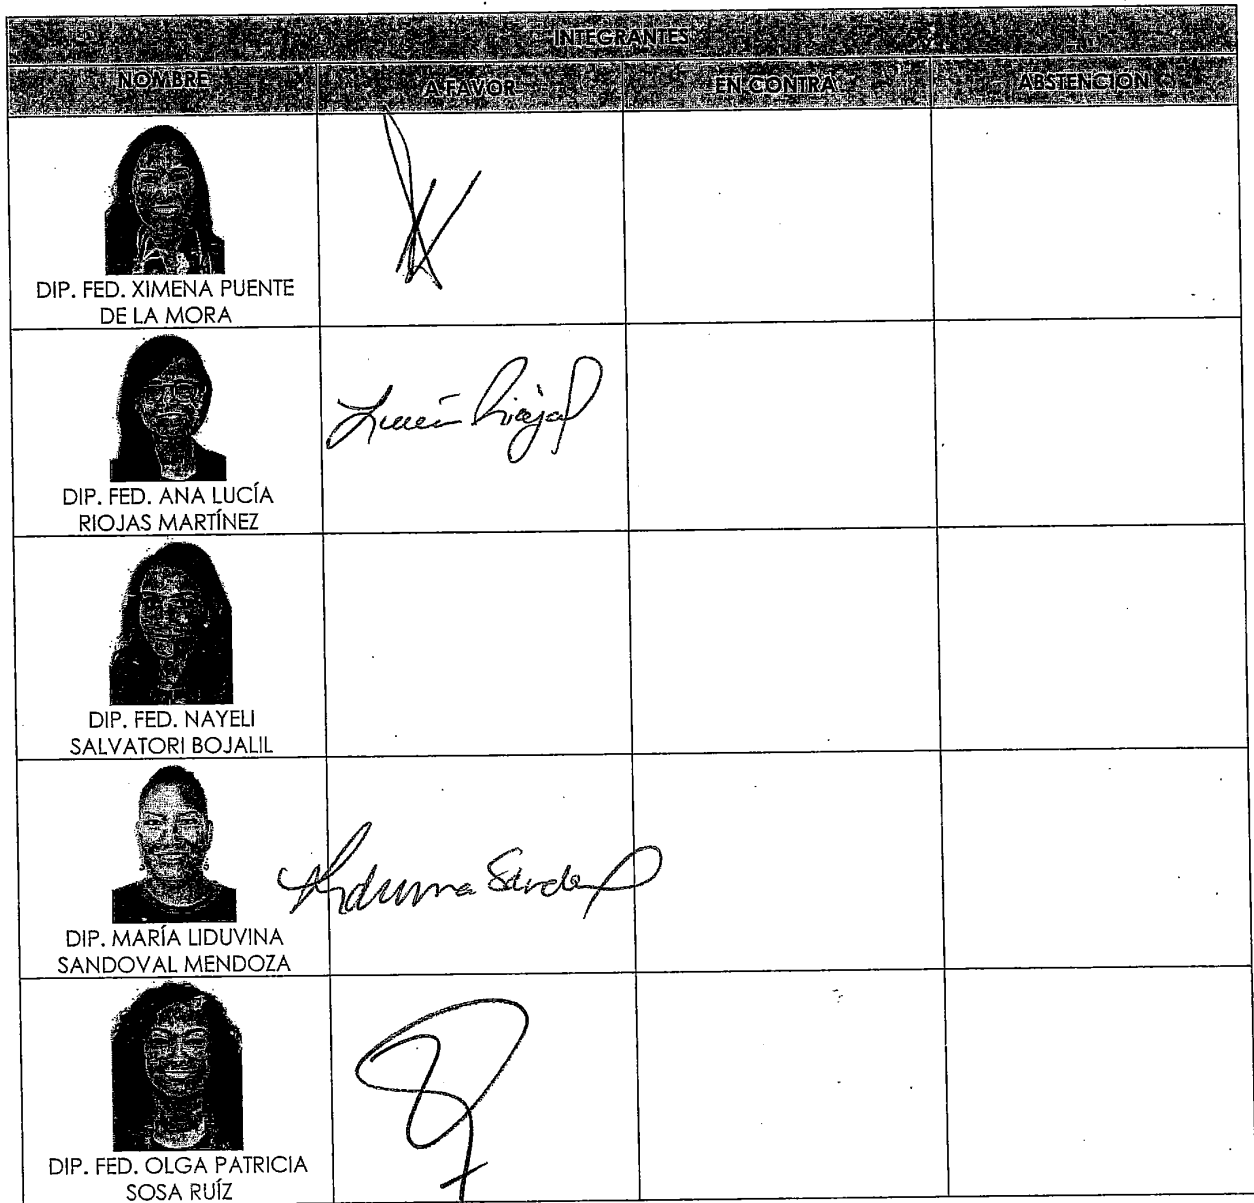 INTEGRANTES
NOMBRE A FAVOR EN CONTRA ABSTENCIÓN
DIP. FED. XIMENA PUENTE
DE LA MORA
DIP. FED. ANA LUCÍA
RIOJAS MARTÍNEZ
Lucía Riojas
DIP. FED. NAYELI
SALVATORI BOJALIL
DIP. MARÍA LIDUVINA
SANDOVAL MENDOZA
DIP. FED. OLGA PATRICIA
SOSA RUÍZ